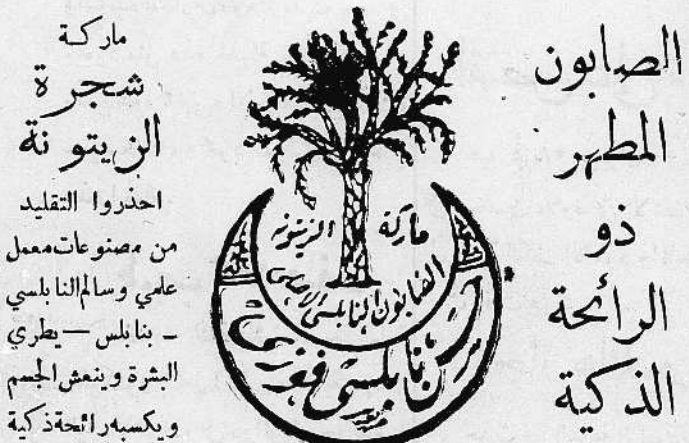 الصابون
المطهر
ذو
الرائحة
الذكية
ماركة الزيتونه
الصابون النابلسي
نابلسي
ماركة
شجرة
الزيتونة
احذروا التقليد
من مصنوعات معمل
علمي وسالم النابلسي
ـ بنابلس — يطري
البشرة وينعش الجسم
ويكسبه رائحة ذكية